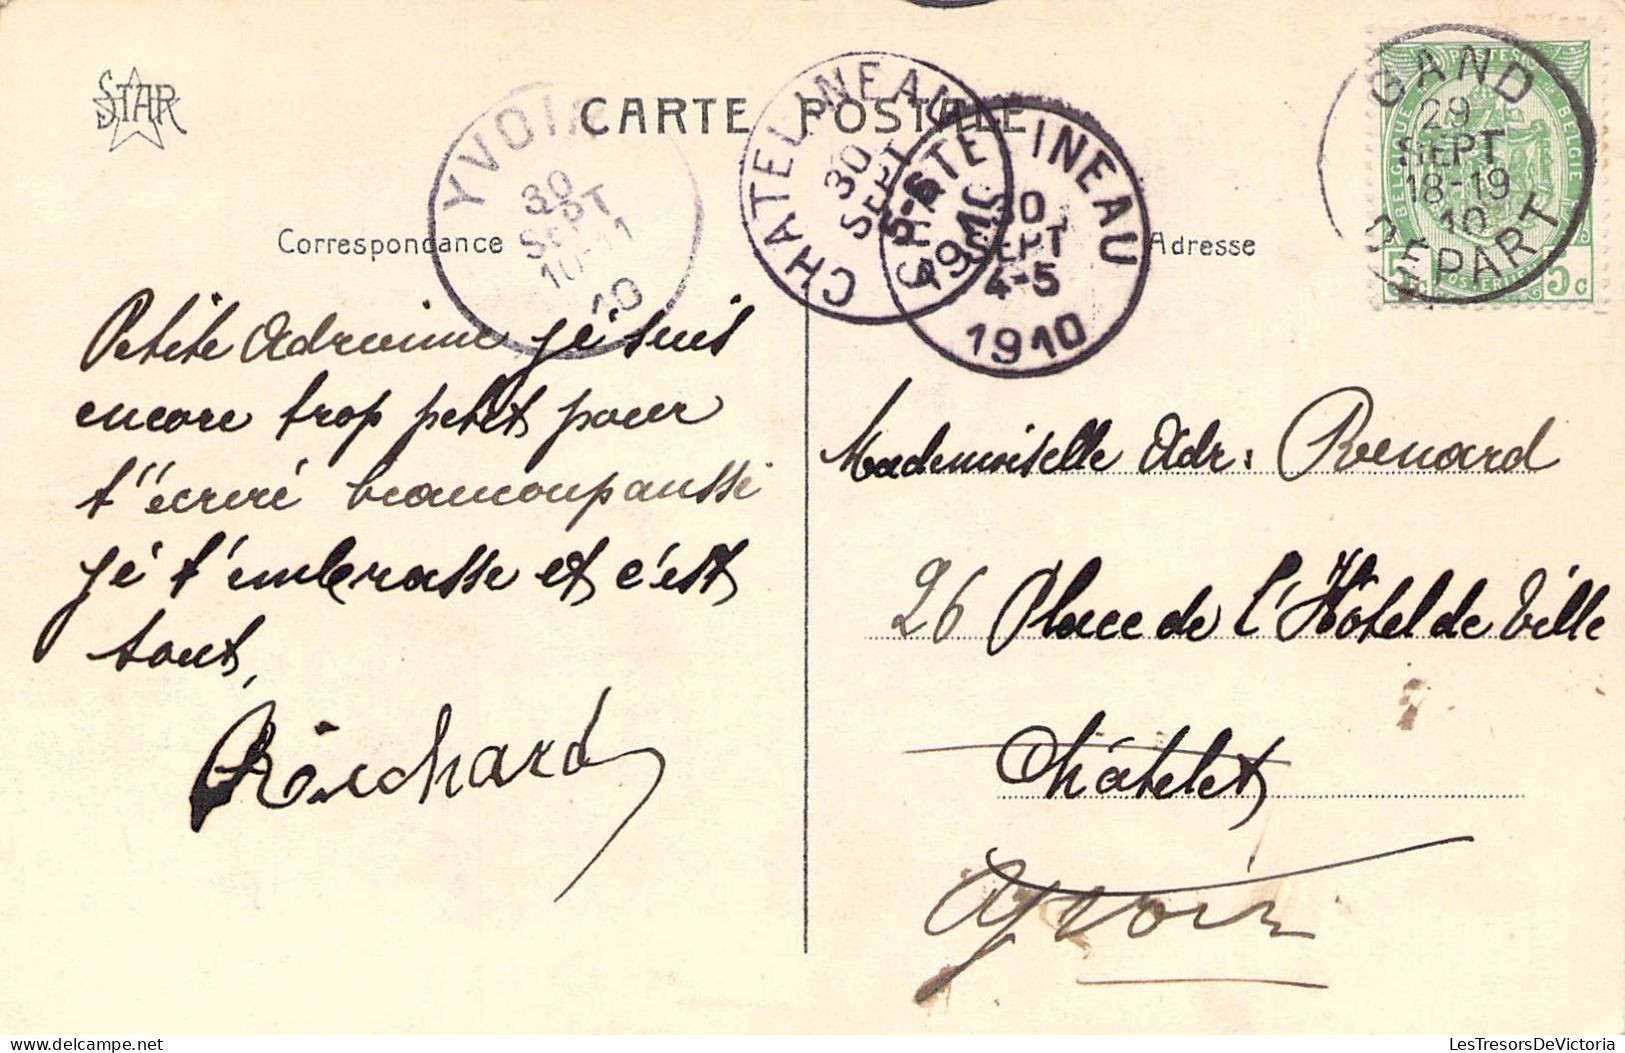 STAR
CARTE POSTALE
Correspondance
Adresse
YVOIR
30
SEPT
10-11
10
CHATELINEAU
30
SEPT
5-6
1910
CHATELINEAU
30
SEPT
4-5
1910
GAND
29
SEPT
18-19
10
DEPART
POSTES
BELGIQUE
BELGIE
POSTERIJEN
5c
5c
Petite Adrienne je suis
encore trop petit pour
t'écrire beaucoup aussi
je t'embrasse et c'est
tout,
Richard
Mademoiselle Adr: Renard
26 Place de l'Hôtel de Ville
Châtelet
Yvoir
LesTresorsDeVictoria.com